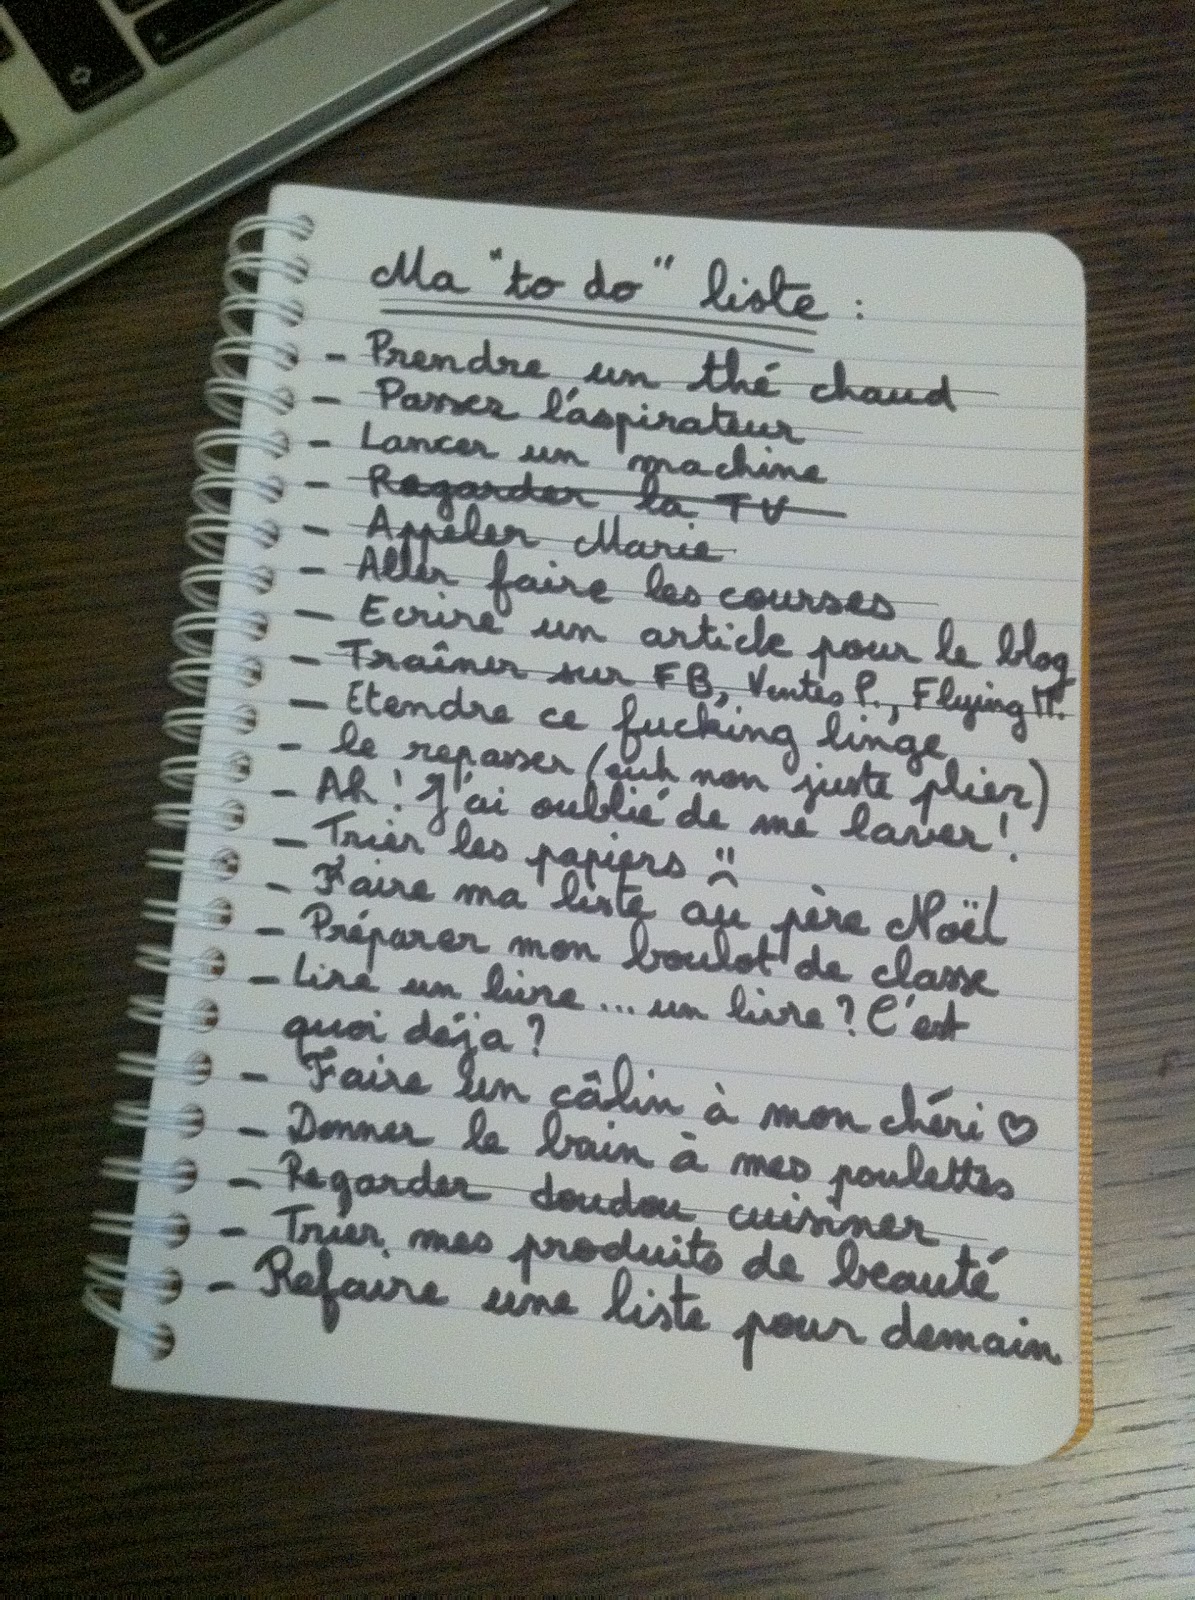 Ma "to do" liste :
- Prendre un thé chaud
- Passer l'aspirateur
- Lancer un machine
- Regarder la TV
- Appeler Marie
- Aller faire les courses
- Ecrire un article pour le blog
- Traîner sur FB, Ventes P., Flying T.
- Etendre ce fucking linge
- le repasser (euh non juste plier)
- Ah ! J'ai oublié de me laver !
- Trier les papiers :(
- Faire ma liste au père Noël
- Préparer mon boulot de classe
- Lire un livre... un livre ? C'est
quoi déja ?
- Faire un câlin à mon chéri ♡
- Donner le bain à mes poulettes
- Regarder doudou cuisiner
- Trier mes produits de beauté
- Refaire une liste pour demain